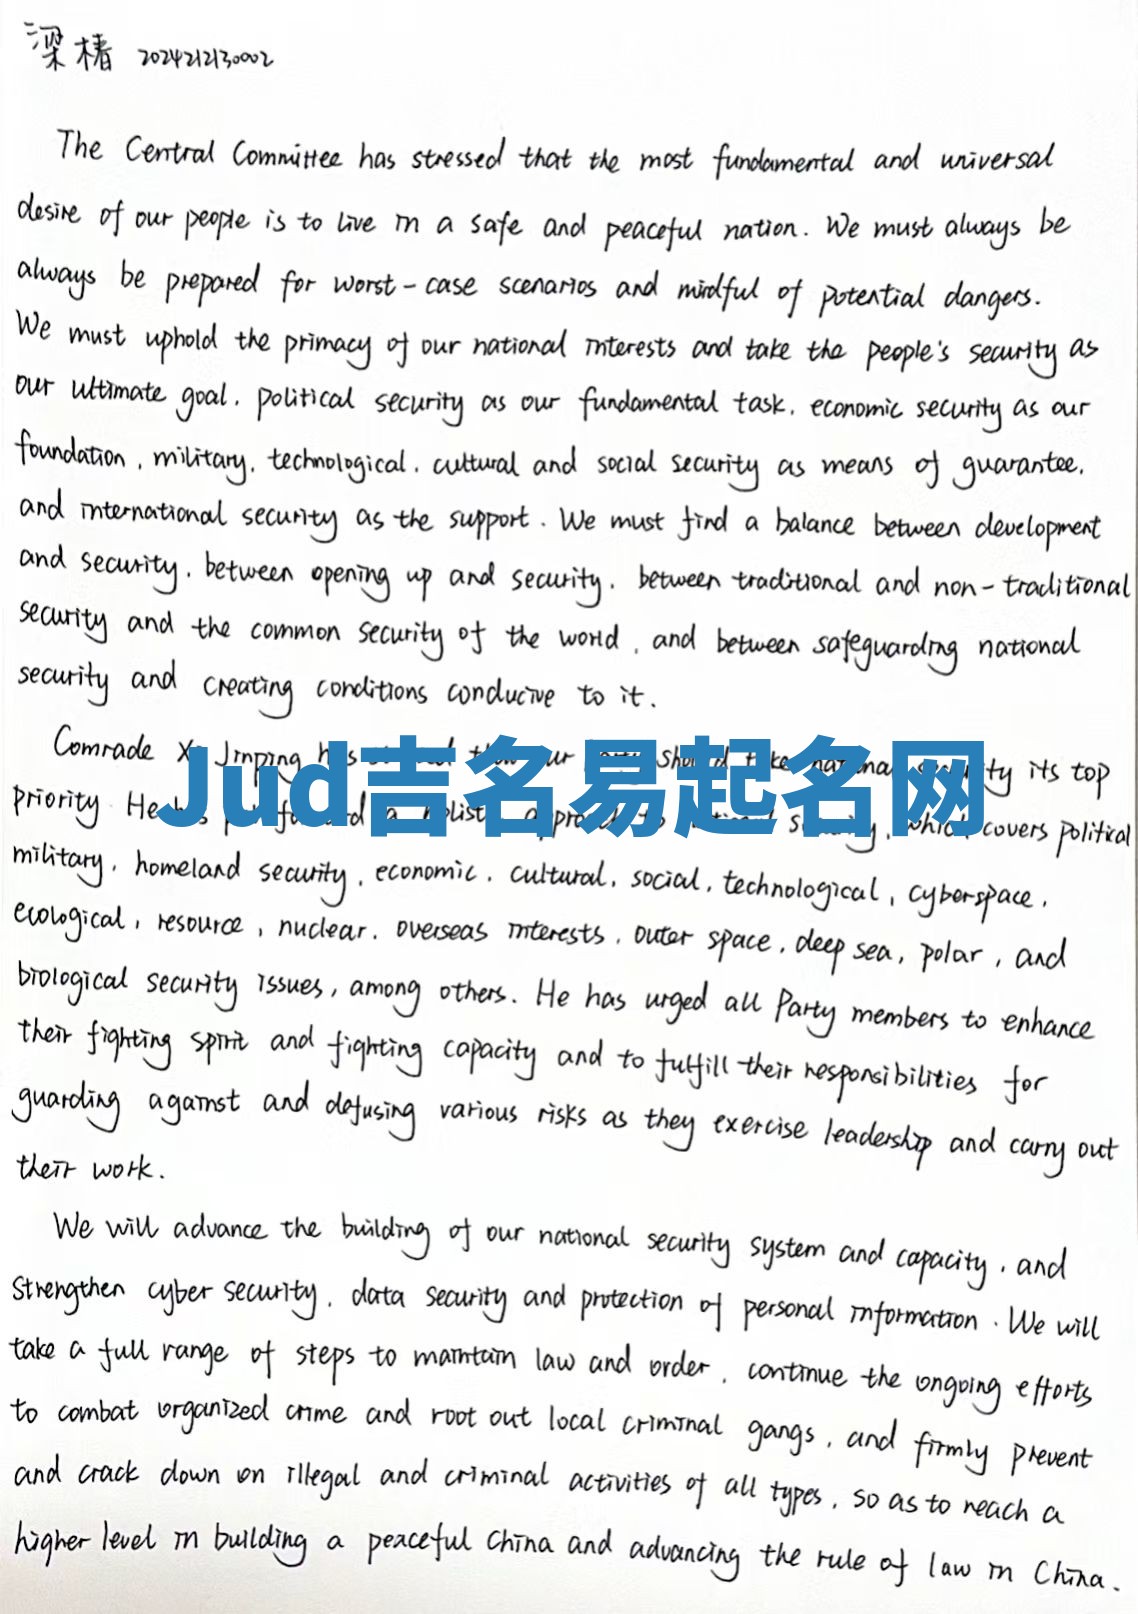 梁椿 2024212130002
The Central Committee has stressed that the most fundamental and universal
desire of our people is to live in a safe and peaceful nation. We must always be
always be prepared for worst-case scenarios and mindful of potential dangers.
We must uphold the primacy of our national interests and take the people's security as
our ultimate goal, political security as our fundamental task, economic security as our
foundation, military, technological, cultural and social security as means of guarantee,
and international security as the support. We must find a balance between development
and security, between opening up and security, between traditional and non-traditional
security and the common security of the world, and between safeguarding national
security and creating conditions conducive to it.
Comrade Xi Jinping has that our should take national security its top
Jud吉名易起名网
priority He has a holistic approach to national security, which covers political
military, homeland security, economic, cultural, social, technological, cyberspace,
ecological, resource, nuclear, overseas interests, outer space, deep sea, polar, and
biological security issues, among others. He has urged all Party members to enhance
their fighting spirit and fighting capacity and to fulfill their responsibilities for
guarding against and defusing various risks as they exercise leadership and carry out
their work.
We will advance the building of our national security system and capacity, and
strengthen cyber security, data security and protection of personal information. We will
take a full range of steps to maintain law and order, continue the ongoing efforts
to combat organized crime and root out local criminal gangs, and firmly prevent
and crack down on illegal and criminal activities of all types, so as to reach a
higher level in building a peaceful China and advancing the rule of law in China.